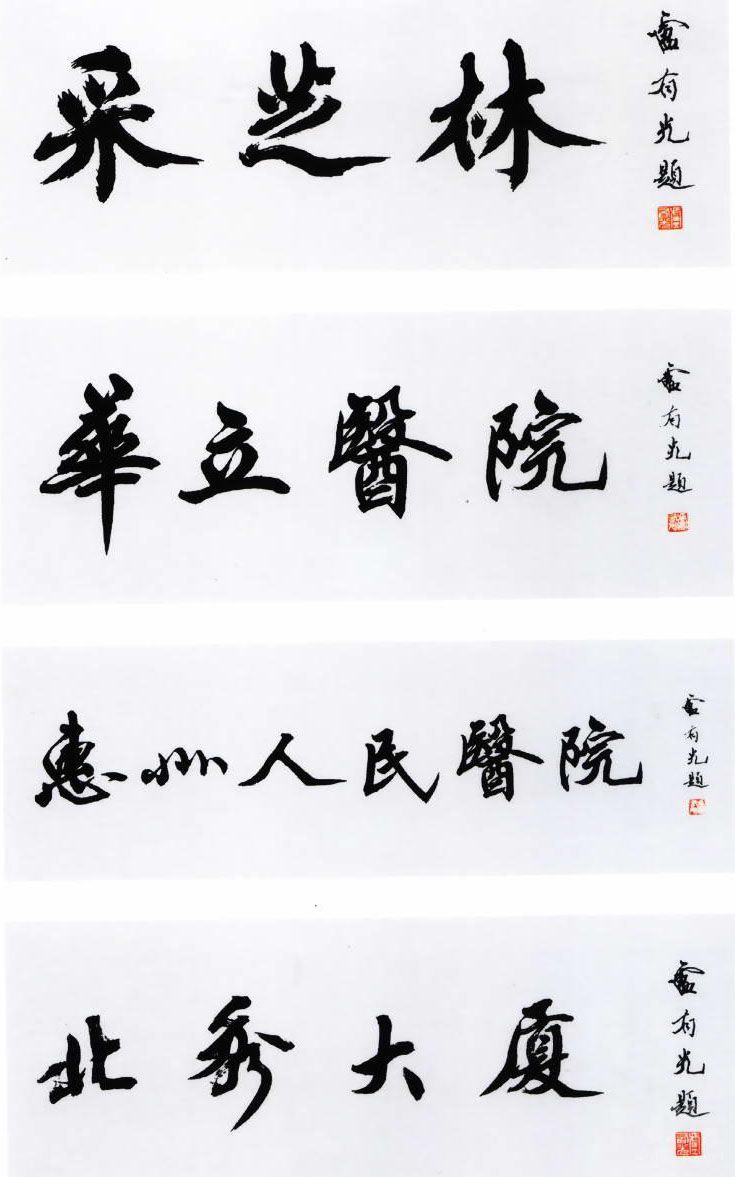 采芝林
盧有光題
華立醫院
盧有光題
惠州人民醫院
盧有光題
北秀大厦
盧有光題